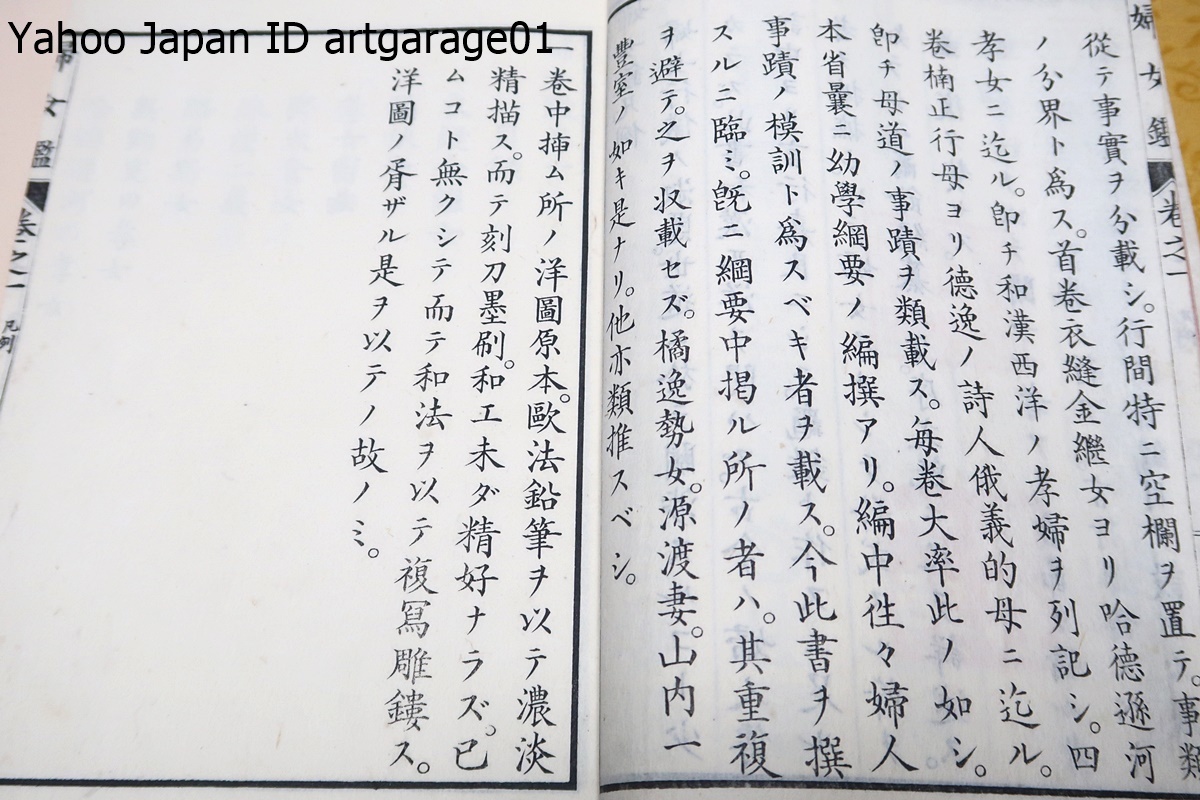 Yahoo Japan ID artgarage01
婦女鑑 卷之一
從テ事實ヲ分載シ。行間特ニ空欄ヲ置テ。事類
ノ分界ト爲ス。首卷衣縫金繼女ヨリ哈德遜河
孝女ニ迄ル。卽チ和漢西洋ノ孝婦ヲ列記シ。四
卷楠正行母ヨリ德逸ノ詩人俄義的母ニ迄ル。
卽チ母道ノ事蹟ヲ類載ス。每卷大率此ノ如シ。
本省曩ニ幼學綱要ノ編撰アリ。編中徃々婦人
事蹟ノ模訓ト爲スベキ者ヲ載ス。今此書ヲ撰
スルニ臨ミ。旣ニ綱要中掲ル所ノ者ハ。其重複
ヲ避テ。之ヲ収載セズ。橘逸勢女。源渡妻。山内一
豐室ノ如キ是ナリ。他亦類推スベシ。
一卷中挿ム所ノ洋圖原本。歐法鉛筆ヲ以テ濃淡
精描ス。而テ刻刀墨刷。和工未ダ精好ナラズ。已
ムコト無クシテ而テ和法ヲ以テ複冩雕鏤ス。
洋圖ノ胥ザル是ヲ以テノ故ノミ。
婦女鑑 卷之一 凡例